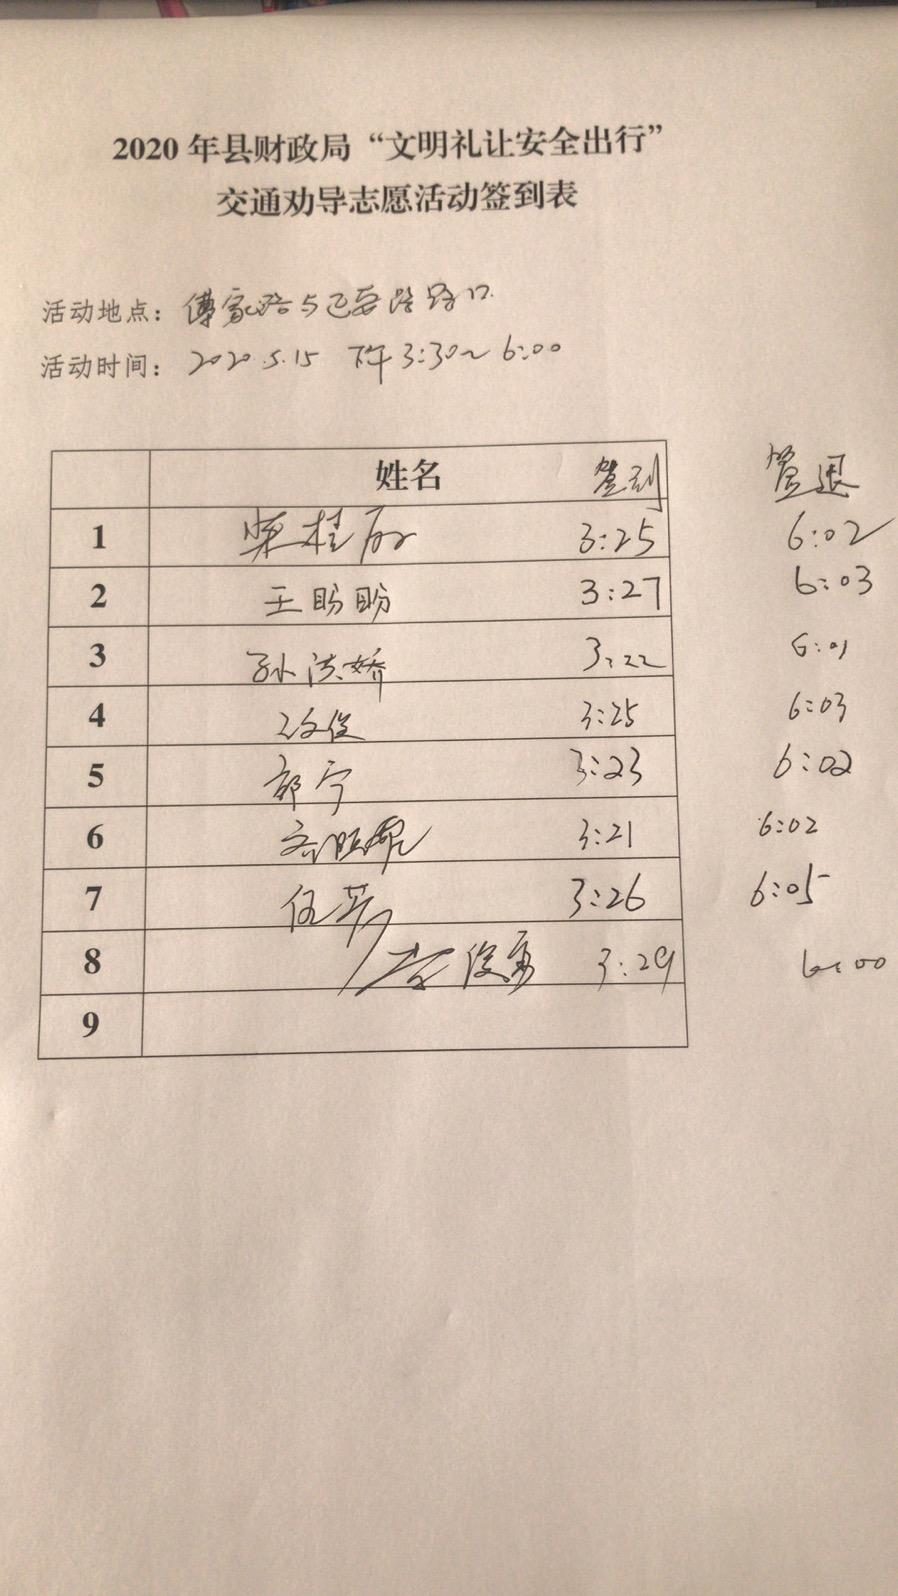 2020 年县财政局“文明礼让安全出行”
交通劝导志愿活动签到表
活动地点：傅家路与 路路口
活动时间：2020.5.15 下午3:30~6:00
姓名 签到 签退
1 3:25 6:02
2 王盼盼 3:27 6:03
3 孙洪娇 3:22 6:01
4 3:25 6:03
5 郭宁 3:23 6:02
6 3:21 6:02
7 伍 3:26 6:05
8 俊勇 3:29 6:00
9